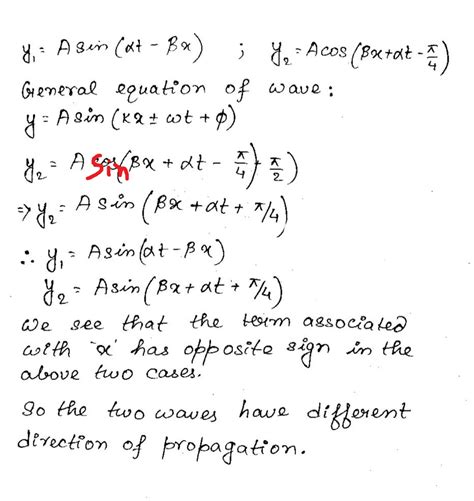 y₁ = A sin (αt - βx) ; y₂ = A cos (βx + αt - π/4)
General equation of wave :
y = A sin (Kx ± ωt + φ)
y₂ = A sin (βx + αt - π/4 + π/2)
⇒ y₂ = A sin (βx + αt + π/4)
∴ y₁ = A sin (αt - βx)
y₂ = A sin (βx + αt + π/4)
We see that the term associated
with 'x' has opposite sign in the
above two cases.
So the two waves have different
direction of propagation.